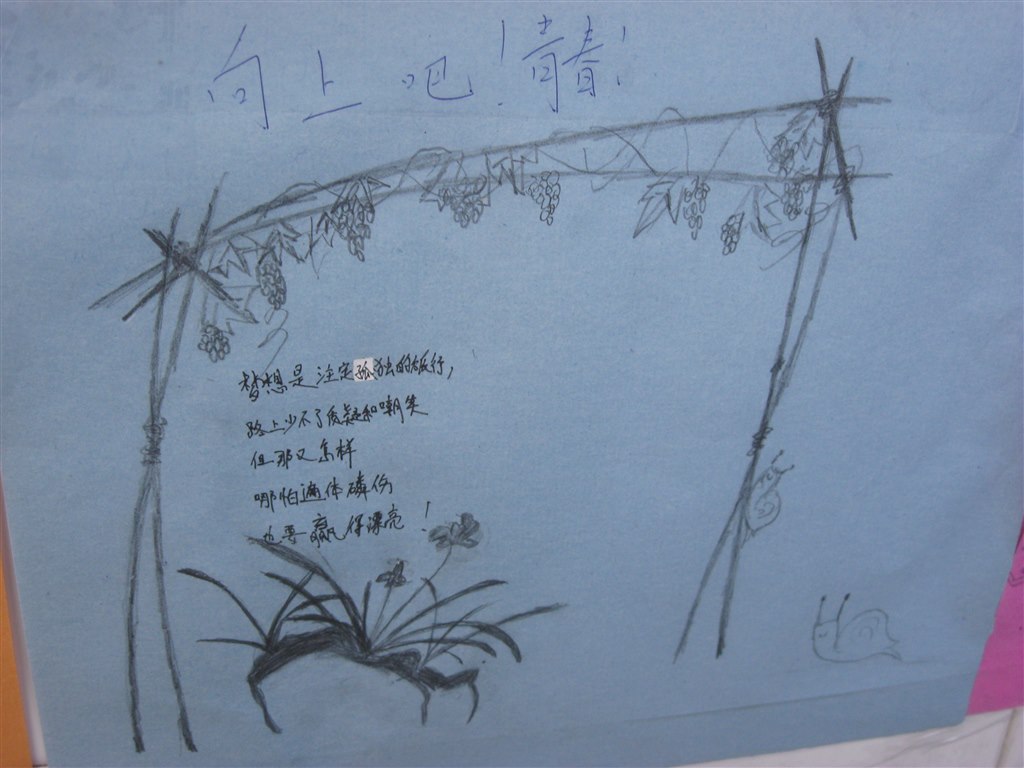 向上吧！青春！
梦想是注定孤独的旅行，
路上少不了质疑和嘲笑
但那又怎样
哪怕遍体磷伤
也要赢得漂亮！